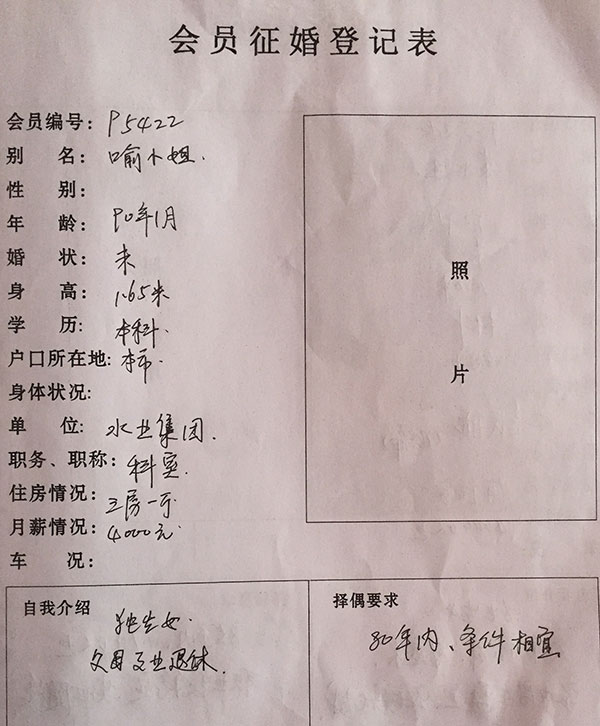 会员征婚登记表
会员编号：P5422
别 名：喻小姐.
性 别：
年 龄：90年1月
婚 状：未
身 高：1.65米
学 历：本科.
户口所在地：本市.
身体状况：
单 位：水业集团.
职务、职称：科室.
住房情况：三房一厅
月薪情况：4000元.
车 况：
照
片
自我介绍
独生女.
父母 业退休.
择偶要求
80年内、条件相宜